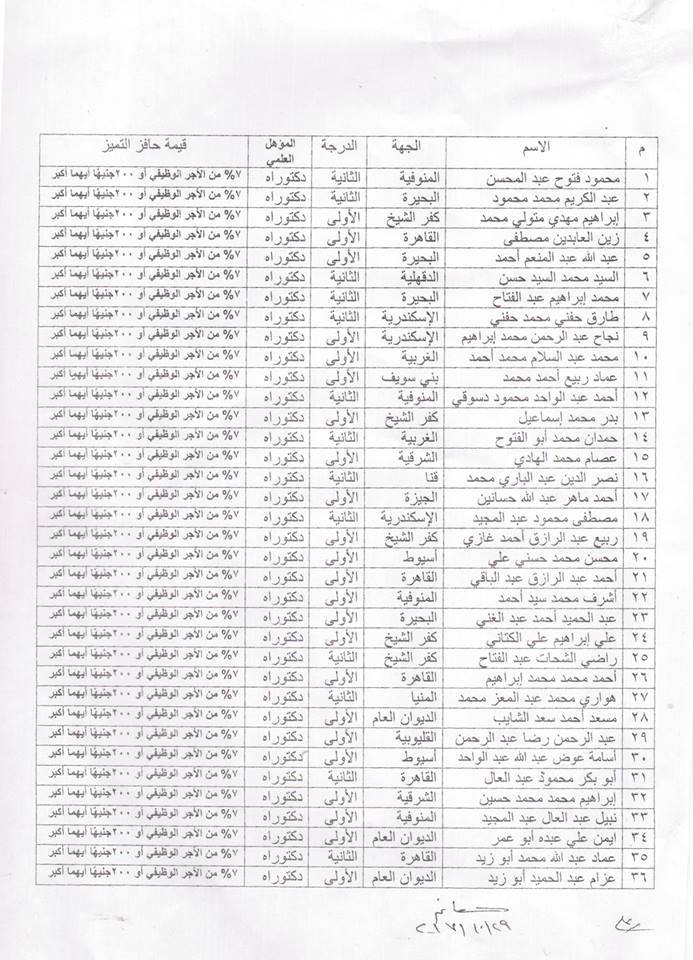 م الاسم الجهة الدرجة المؤهل العلمي قيمة حافز التميز
١ محمود فتوح عبد المحسن المنوفية الثانية دكتوراه ٧% من الأجر الوظيفي أو ٢٠٠جنيهًا أيهما أكبر
٢ عبد الكريم محمد محمود البحيرة الثانية دكتوراه ٧% من الأجر الوظيفي أو ٢٠٠جنيهًا أيهما أكبر
٣ إبراهيم مهدي متولي محمد كفر الشيخ الأولى دكتوراه ٧% من الأجر الوظيفي أو ٢٠٠جنيهًا أيهما أكبر
٤ زين العابدين مصطفى القاهرة الأولى دكتوراه ٧% من الأجر الوظيفي أو ٢٠٠جنيهًا أيهما أكبر
٥ عبد الله عبد المنعم أحمد البحيرة الأولى دكتوراه ٧% من الأجر الوظيفي أو ٢٠٠جنيهًا أيهما أكبر
٦ السيد محمد السيد حسن الدقهلية الثانية دكتوراه ٧% من الأجر الوظيفي أو ٢٠٠جنيهًا أيهما أكبر
٧ محمد إبراهيم عبد الفتاح البحيرة الثانية دكتوراه ٧% من الأجر الوظيفي أو ٢٠٠جنيهًا أيهما أكبر
٨ طارق حفني محمد حفني الإسكندرية الثانية دكتوراه ٧% من الأجر الوظيفي أو ٢٠٠جنيهًا أيهما أكبر
٩ نجاح عبد الرحمن محمد إبراهيم الإسكندرية الأولى دكتوراه ٧% من الأجر الوظيفي أو ٢٠٠جنيهًا أيهما أكبر
١٠ محمد عبد السلام محمد أحمد الغربية الأولى دكتوراه ٧% من الأجر الوظيفي أو ٢٠٠جنيهًا أيهما أكبر
١١ عماد ربيع أحمد محمد بني سويف الأولى دكتوراه ٧% من الأجر الوظيفي أو ٢٠٠جنيهًا أيهما أكبر
١٢ أحمد عبد الواحد محمود دسوقي المنوفية الثانية دكتوراه ٧% من الأجر الوظيفي أو ٢٠٠جنيهًا أيهما أكبر
١٣ بدر محمد إسماعيل كفر الشيخ الأولى دكتوراه ٧% من الأجر الوظيفي أو ٢٠٠جنيهًا أيهما أكبر
١٤ حمدان محمد أبو الفتوح الغربية الثانية دكتوراه ٧% من الأجر الوظيفي أو ٢٠٠جنيهًا أيهما أكبر
١٥ عصام محمد الهادي الشرقية الأولى دكتوراه ٧% من الأجر الوظيفي أو ٢٠٠جنيهًا أيهما أكبر
١٦ نصر الدين عبد الباري محمد قنا الثانية دكتوراه ٧% من الأجر الوظيفي أو ٢٠٠جنيهًا أيهما أكبر
١٧ أحمد ماهر عبد الله حسانين الجيزة الأولى دكتوراه ٧% من الأجر الوظيفي أو ٢٠٠جنيهًا أيهما أكبر
١٨ مصطفى محمود عبد المجيد الإسكندرية الثانية دكتوراه ٧% من الأجر الوظيفي أو ٢٠٠جنيهًا أيهما أكبر
١٩ ربيع عبد الرازق أحمد غازي كفر الشيخ الأولى دكتوراه ٧% من الأجر الوظيفي أو ٢٠٠جنيهًا أيهما أكبر
٢٠ محسن محمد حسني علي أسيوط الأولى دكتوراه ٧% من الأجر الوظيفي أو ٢٠٠جنيهًا أيهما أكبر
٢١ أحمد عبد الرازق عبد الباقي القاهرة الأولى دكتوراه ٧% من الأجر الوظيفي أو ٢٠٠جنيهًا أيهما أكبر
٢٢ أشرف محمد سيد أحمد المنوفية الأولى دكتوراه ٧% من الأجر الوظيفي أو ٢٠٠جنيهًا أيهما أكبر
٢٣ عبد الحميد أحمد عبد الغني البحيرة الأولى دكتوراه ٧% من الأجر الوظيفي أو ٢٠٠جنيهًا أيهما أكبر
٢٤ علي إبراهيم علي الكتاني كفر الشيخ الأولى دكتوراه ٧% من الأجر الوظيفي أو ٢٠٠جنيهًا أيهما أكبر
٢٥ راضي الشحات عبد الفتاح كفر الشيخ الثانية دكتوراه ٧% من الأجر الوظيفي أو ٢٠٠جنيهًا أيهما أكبر
٢٦ أحمد محمد محمد إبراهيم القاهرة الأولى دكتوراه ٧% من الأجر الوظيفي أو ٢٠٠جنيهًا أيهما أكبر
٢٧ هواري محمد عبد المعز محمد المنيا الثانية دكتوراه ٧% من الأجر الوظيفي أو ٢٠٠جنيهًا أيهما أكبر
٢٨ مسعد أحمد سعد الشايب الديوان العام الأولى دكتوراه ٧% من الأجر الوظيفي أو ٢٠٠جنيهًا أيهما أكبر
٢٩ عبد الرحمن رضا عبد الرحمن القليوبية الأولى دكتوراه ٧% من الأجر الوظيفي أو ٢٠٠جنيهًا أيهما أكبر
٣٠ أسامة عوض عبد الله عبد الواحد أسيوط الأولى دكتوراه ٧% من الأجر الوظيفي أو ٢٠٠جنيهًا أيهما أكبر
٣١ أبو بكر محمود عبد العال القاهرة الثانية دكتوراه ٧% من الأجر الوظيفي أو ٢٠٠جنيهًا أيهما أكبر
٣٢ إبراهيم محمد محمد حسين الشرقية الأولى دكتوراه ٧% من الأجر الوظيفي أو ٢٠٠جنيهًا أيهما أكبر
٣٣ نبيل عبد العال عبد المجيد المنوفية الأولى دكتوراه ٧% من الأجر الوظيفي أو ٢٠٠جنيهًا أيهما أكبر
٣٤ ايمن علي عبده أبو عمر الديوان العام الأولى دكتوراه ٧% من الأجر الوظيفي أو ٢٠٠جنيهًا أيهما أكبر
٣٥ عماد عبد الله محمد أبو زيد القاهرة الثانية دكتوراه ٧% من الأجر الوظيفي أو ٢٠٠جنيهًا أيهما أكبر
٣٦ عزام عبد الحميد أبو زيد الديوان العام الأولى دكتوراه ٧% من الأجر الوظيفي أو ٢٠٠جنيهًا أيهما أكبر